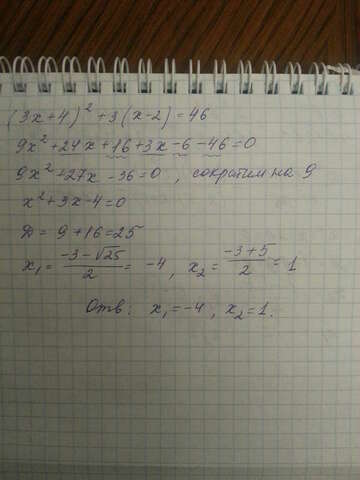 (3x+4)² +3(x-2)=46
9x²+24x+16+3x-6-46=0
9x²+27x-36=0 , сократим на 9
x²+3x-4=0
Д= 9+16=25
x₁= (-3-√25)/2 = -4 , x₂= (-3+5)/2 = 1
Отв: x₁=-4 , x₂=1.